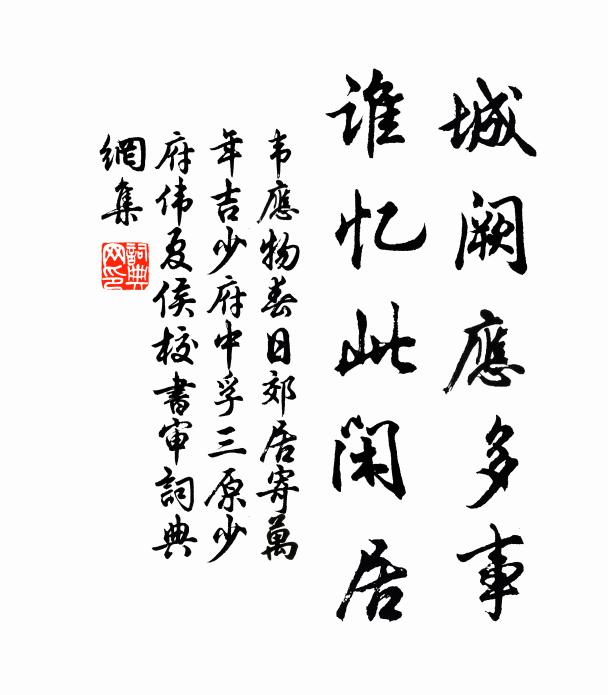 城阙應多事
谁忆此闲居
韦應物春日郊居寄萬
年吉少府中孚三原少
府伟夏侯校書审詞典
網集
詞典网印